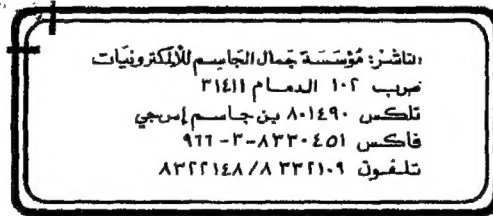 الناشر: مؤسسة جمال الجاسم للألكترونيات
ص‌ب ١٠٢ الدمام ٣١٤١١
تلكس ٨٠١٤٩٠ بن جاسم إس جي
فاكس ٨٣٣٠٤٥١-٣-٩٦٦
تلفون ٨٣٣٢١٠٩ / ٨٣٢٢١٤٨